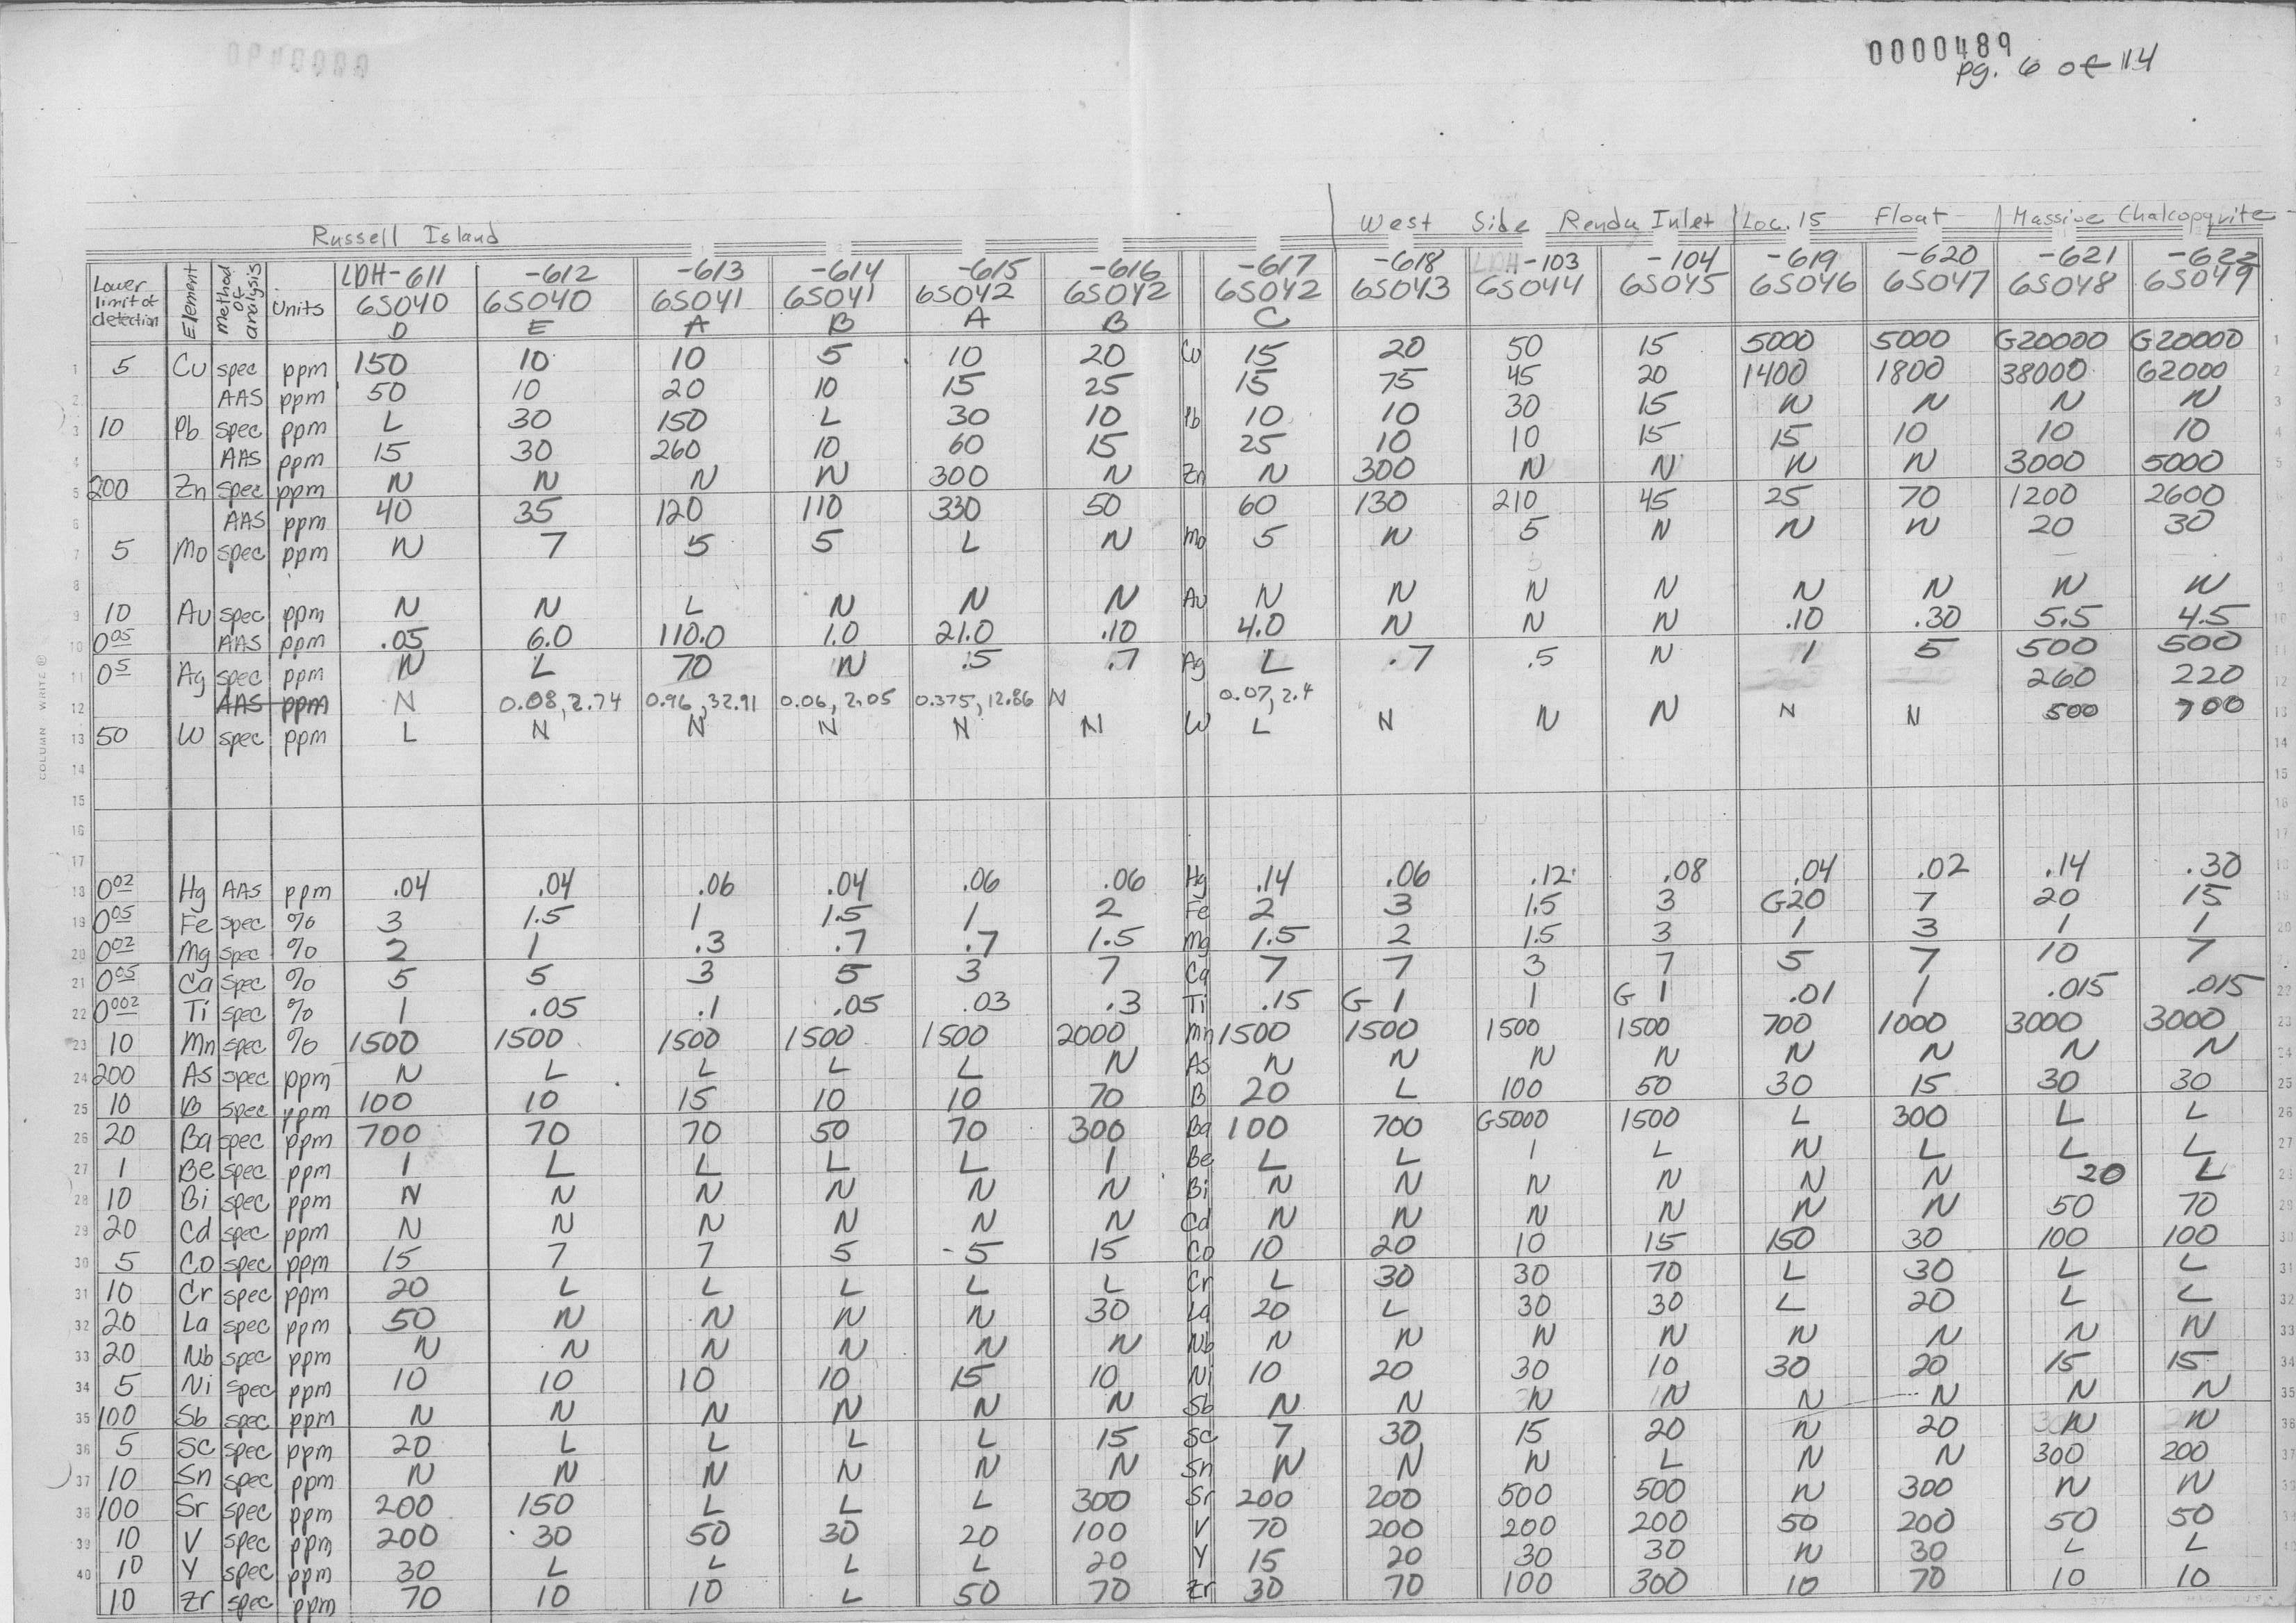 0000489
pg. 6 of 14
Russell Island West Side Rendu Inlet Loc. 15 Float Massive Chalcopyrite
Lower limit of detection Element Method of analysis Units LDH-611 -612 -613 -614 -615 -616 -617 -618 LDH-103 -104 -619 -620 -621 -622
6S040 6S040 6S041 6S041 6S042 6S042 6S042 6S043 6S044 6S045 6S046 6S047 6S048 6S049
D E A B A B C
1 5 Cu spec ppm 150 10 10 5 10 20 Cu 15 20 50 15 5000 5000 G20000 G20000 1
2 AAS ppm 50 10 20 10 15 25 15 75 45 20 1400 1800 38000 62000 2
3 10 Pb spec ppm L 30 150 L 30 10 Pb 10 10 30 15 N N N N 3
4 AAS ppm 15 30 260 10 60 15 25 10 10 15 15 10 10 10 4
5 200 Zn spec ppm N N N N 300 N Zn N 300 N N N N 3000 5000 5
6 AAS ppm 40 35 120 110 330 50 60 130 210 45 25 70 1200 2600
7 5 Mo spec ppm N 7 5 5 L N Mo 5 N 5 N N N 20 30 7
8 8
9 10 Au spec ppm N N L N N N Au N N N N N N N N 9
10 0.05 AAS ppm .05 6.0 110.0 1.0 21.0 .10 4.0 N N N .10 .30 5.5 4.5 10
11 0.5 Ag spec ppm N L 70 N .5 .7 Ag L .7 .5 N 1 5 500 500 11
260 220
12 AAS ppm N 0.08, 2.74 0.96, 32.91 0.06, 2.05 0.375, 12.86 N 0.07, 2.4
13 50 W spec ppm L N N N N N W L N N N N N 500 700 13
14 14
15 15
16 16
17 17
18 0.02 Hg AAS ppm .04 .04 .06 .04 .06 .06 Hg .14 .06 .12 .08 .04 .02 .14 .30
19 0.05 Fe spec % 3 1.5 1 1.5 1 2 Fe 2 3 1.5 3 G20 7 20 15
20 0.02 Mg spec % 2 1 .3 .7 .7 1.5 Mg 1.5 2 1.5 3 1 3 1 1 20
21 0.05 Ca spec % 5 5 3 5 3 7 Ca 7 7 3 7 5 7 10 7
22 0.002 Ti spec % 1 .05 .1 .05 .03 .3 Ti .15 G 1 1 G 1 .01 1 .015 .015 22
23 10 Mn spec % 1500 1500 1500 1500 1500 2000 Mn 1500 1500 1500 1500 700 1000 3000 3000 23
24 200 As spec ppm N L L L L N As N N N N N N N N 24
25 10 B spec ppm 100 10 15 10 10 70 B 20 L 100 50 30 15 30 30 25
26 20 Ba spec ppm 700 70 70 50 70 300 Ba 100 700 G5000 1500 L 300 L L 26
27 1 Be spec ppm 1 L L L L 1 Be L L 1 L N L L L 27
28 10 Bi spec ppm N N N N N N Bi N N N N N N 20 L 28
29 20 Cd spec ppm N N N N N N Cd N N N N N N 50 70 29
30 5 Co spec ppm 15 7 7 5 5 15 Co 10 20 10 15 150 30 100 100 30
31 10 Cr spec ppm 20 L L L L L Cr L 30 30 70 L 30 L L 31
32 20 La spec ppm 50 N N N N 30 La 20 L 30 30 L 20 L L 32
33 20 Nb spec ppm N N N N N N Nb N N N N N N N N 33
34 5 Ni spec ppm 10 10 10 10 15 10 Ni 10 20 30 10 30 20 15 15 34
35 100 Sb spec ppm N N N N N N Sb N N N N N N N N 35
36 5 Sc spec ppm 20 L L L L 15 Sc 7 30 15 20 N 20 N N 36
37 10 Sn spec ppm N N N N N N Sn N N N L N N 300 200 37
38 100 Sr spec ppm 200 150 L L L 300 Sr 200 200 500 500 N 300 N N
39 10 V spec ppm 200 30 50 30 20 100 V 70 200 200 200 50 200 50 50 39
40 10 Y spec ppm 30 L L L L 20 Y 15 20 30 30 N 30 L L 40
10 Zr spec ppm 70 10 10 L 50 70 Zr 30 70 100 300 10 70 10 10
COLUMN WRITE ®